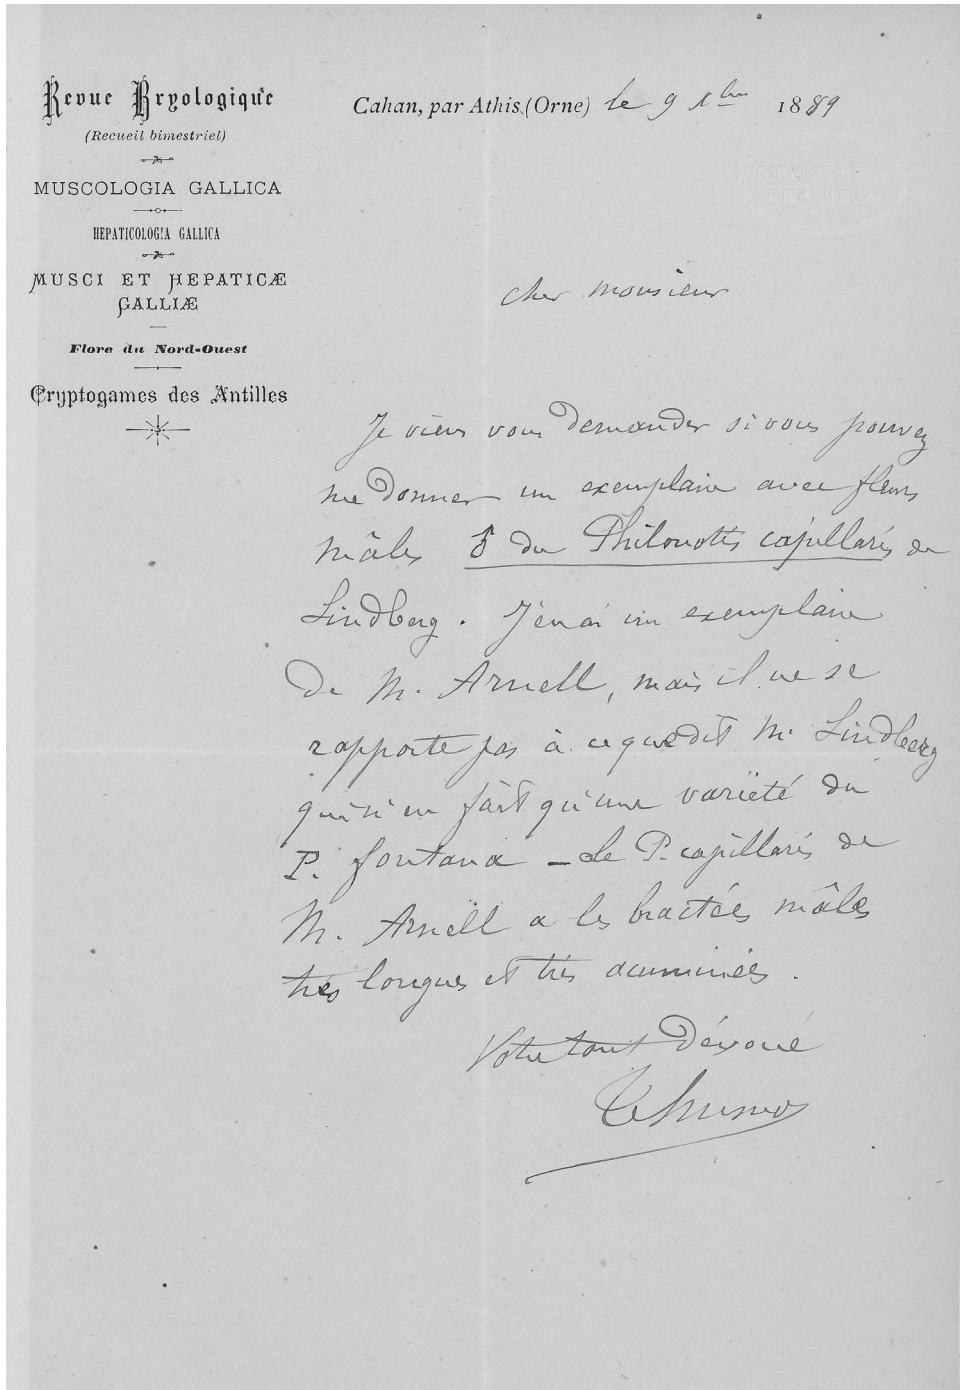 Revue Bryologique
(Recueil bimestriel)
MUSCOLOGIA GALLICA
HEPATICOLOGIA GALLICA
MUSCI ET HEPATICÆ
GALLIÆ
Flore du Nord-Ouest
Cryptogames des Antilles
Cahan, par Athis (Orne) le 9 Xbre 1889
Cher monsieur
Je viens vous demander si vous pouvez
me donner un exemplaire avec fleurs
mâles du Philonotis capillaris de
Lindberg. J'en ai un exemplaire
de M. Arnell, mais il ne se
rapporte pas à ce que dit M. Lindberg
qui n'en fait qu'une variété du
P. fontana – Le P. capillaris de
M. Arnell a les bractées mâles
très longues et très acuminées.
Votre tout dévoué